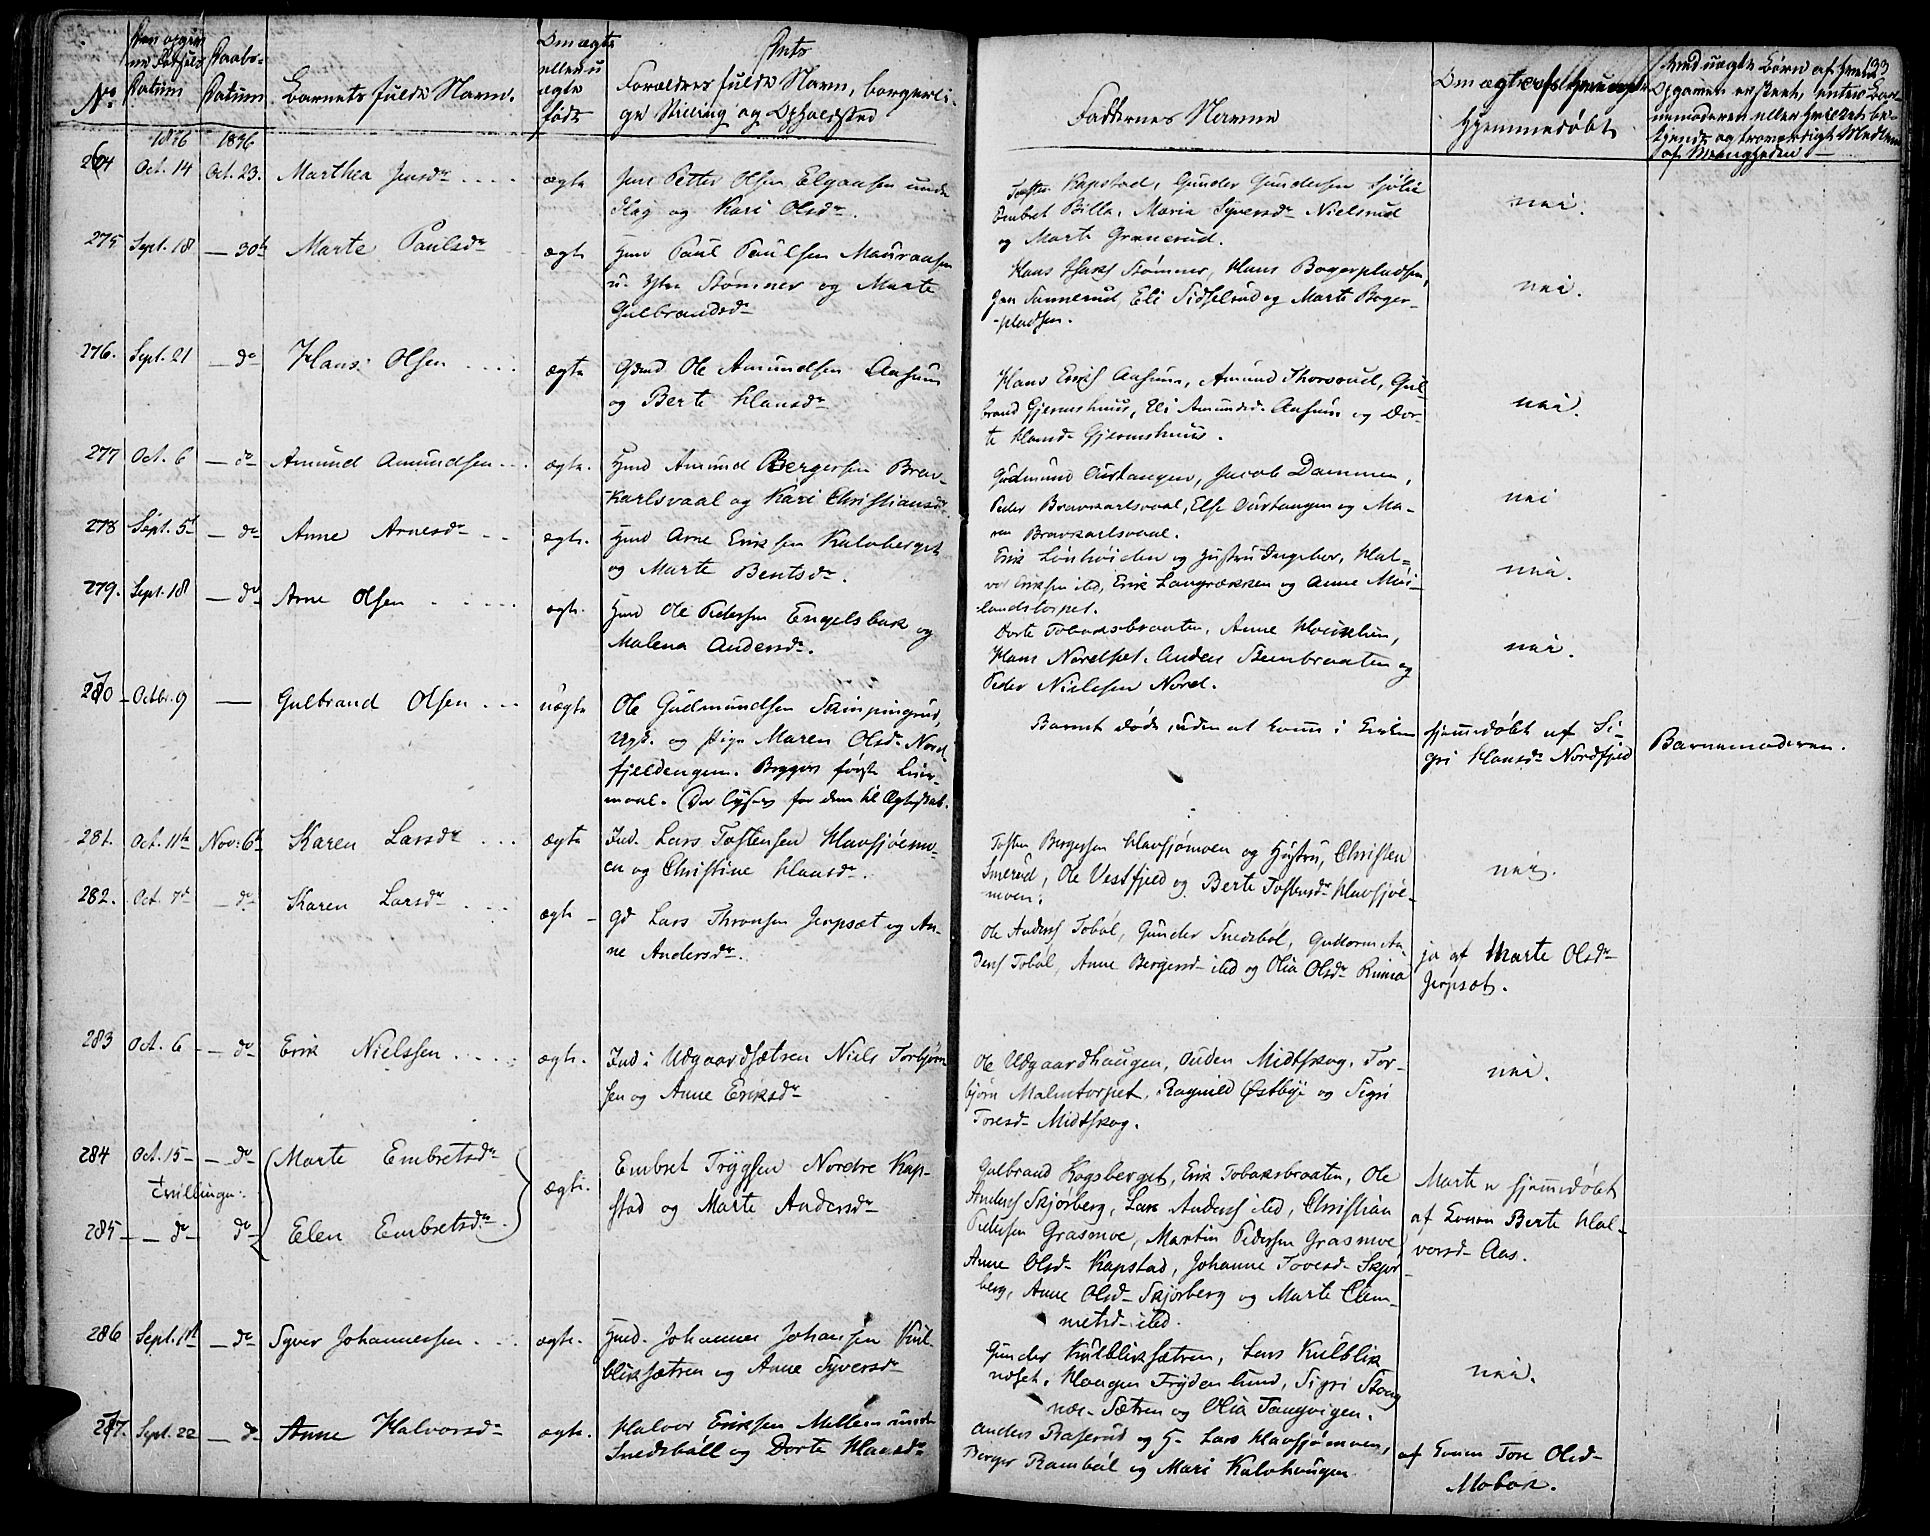 No
Datum
Daabs-
Datum
Barnets fulde Navn.
Om ægte
eller u
ægte
født
Forældres fulde Navn, borgerli-
ge Stilling og Opholdsted
Faddernes Navne
Hjemmedøbt
133
1836 1836
Oct. 14 Oct. 23. Marthea Jensdr ægte Jens Petter Olsen Elgaasen under
Flag og Kari Olsdr.
Kapstad, Gunder Gundersen Sjølie
Embret Billa, Maria Syversdr Nielsrud
og Marte Granerud.
nei.
275 Sept. 18 — 30te Marte Paulsdr ægte Hmd Paul Paulsen Mauraasen
u. Ytre Stømner og Marte
Gulbrandsdr
Hans Stømner, Hans Bogerpladsen,
Sannerud, Eli Sidselrud og Marte Boger-
pladsen.
nei.
276. Sept. 21 — do Hans Olsen ægte Gdmd Ole Amundsen Aasum
og Berte Hansdr
Hans Ericks Aasum, Amund Thorsrud, Gul-
brand Gjermshuus, Eli Amundsd. Aasum og Dor-
te Hansd. Gjermshuus.
nei.
277 Oct. 6 — do Amund Amundsen ægte. Hmd Amund Bergersen Brav-
karlsvaal og Kari Christiansdr
Gudmund Ourtangen, Jacob Dammen,
Peder Bravkarlsvaal, Else Ourtangen og Ma-
ren Bravkarlsvaal.
nei
278 Sept. 5t — do Anne Arnesdr ægte. Hmd Arne Eriksen Kalvberget
og Marte Bentsdr.
Erik Lønhøiden og Hustru Ingebor, Hal-
vor Eriksen ibd, Erik Langrækken og Anne Moi-
landstorpet.
nei.
279. Sept. 18 — do Arne Olsen ægte. Hmd Ole Pedersen Engelsbak og
Malena Andersdr.
Dorte Tobaksbraaten, Anne
Hans Nordset, Anders Stenbraaten og
Peder Nielssen Nord.
nei.
280 Octbr. 9 — Gulbrand Olsen uægte Ole Gudmundsen Skinpungrud,
Ugk. og Pige Maren Olsdr Nord-
fjeldengen. Begges første Leier-
maal. Der lyses for dem til Ægteskab.
Barnet døde, uden at komme i Kirken
hjemmedøbt af Si-
gri Hansdr Nordfjeld
Barnemoderen.
281. Oct. 11te Nov. 6te Karen Larsdr ægte Ind. Lars Tostensen Havsjømo-
en og Christine Hansdr.
Tosten Bergersen Havsjømoen og Hustru, Christen
Smerud, Ole Vestfjeld og Berte Tostensdr Havsjøe-
moen.
nei.
282. Oct. 7d — do Karen Larsdr ægte Gd Lars Thronsen Jerpset og An-
ne Andersdr.
Ole Anders Tobøl, Gunder Snedsbøl, Gudorm An-
ders Tobøl, Anne Bergersd. ibd og Olia Olsdr
ja af Marte Olsdr
Jerpset.
283 Oct. 6 — do Erik Nielssen ægte. Ind. i Udgaardsætren Niels Torbjørn-
sen og Anne Eriksdr
Ole Udgaardhaugen, Ouden Midtskog, Tor-
bjørn Malmtorpet, Ragnild Østbye og Sigri
Toresd. Midtskog.
nei.
284 Oct. 15 — do Marte Embretsdr
Tvillinger
285 — do do Elen Embretsdr.
ægte. Embret Trygsen Nordre Kap-
stad og Marte Andersdr
Gulbrand Kogsberget, Erik Tobaksbraaten, Ole
Anders Skjørberg, Lars Anders ibd, Christian
Pedersen Grasmoe, Martin Pedersen Grasmoe,
Anne Olsd. Kapstad, Johanne Tovesd. Skjør-
berg, Anne Olsd. Skjørberg og Marte Clem-
metsd. ibd.
Marte er hjemmedøbt
af Konen Berte Hal-
vorsd. Aas.
286 Sept. 11te — do Syver Johannessen ægte. Hmd. Johannes Johansen Kul-
bliksætren og Anne Syversdr
Gunder Kulbliksætren, Lars Kulblik
udset, Haagen Frydenlund, Sigri Stong
næs Sætren og Olia Tangvigen.
nei.
287. Sept. 22 — do Anne Halvorsdr ægte. Halvor Eriksen Mellem under
Snedsbøll og Dorte Hansdr
Anders Raserud og H. Lars Havsjømoen,
Berger Rambøl og Mari Kalvhaugen
af Konen Tore Olsd.
Mobak.